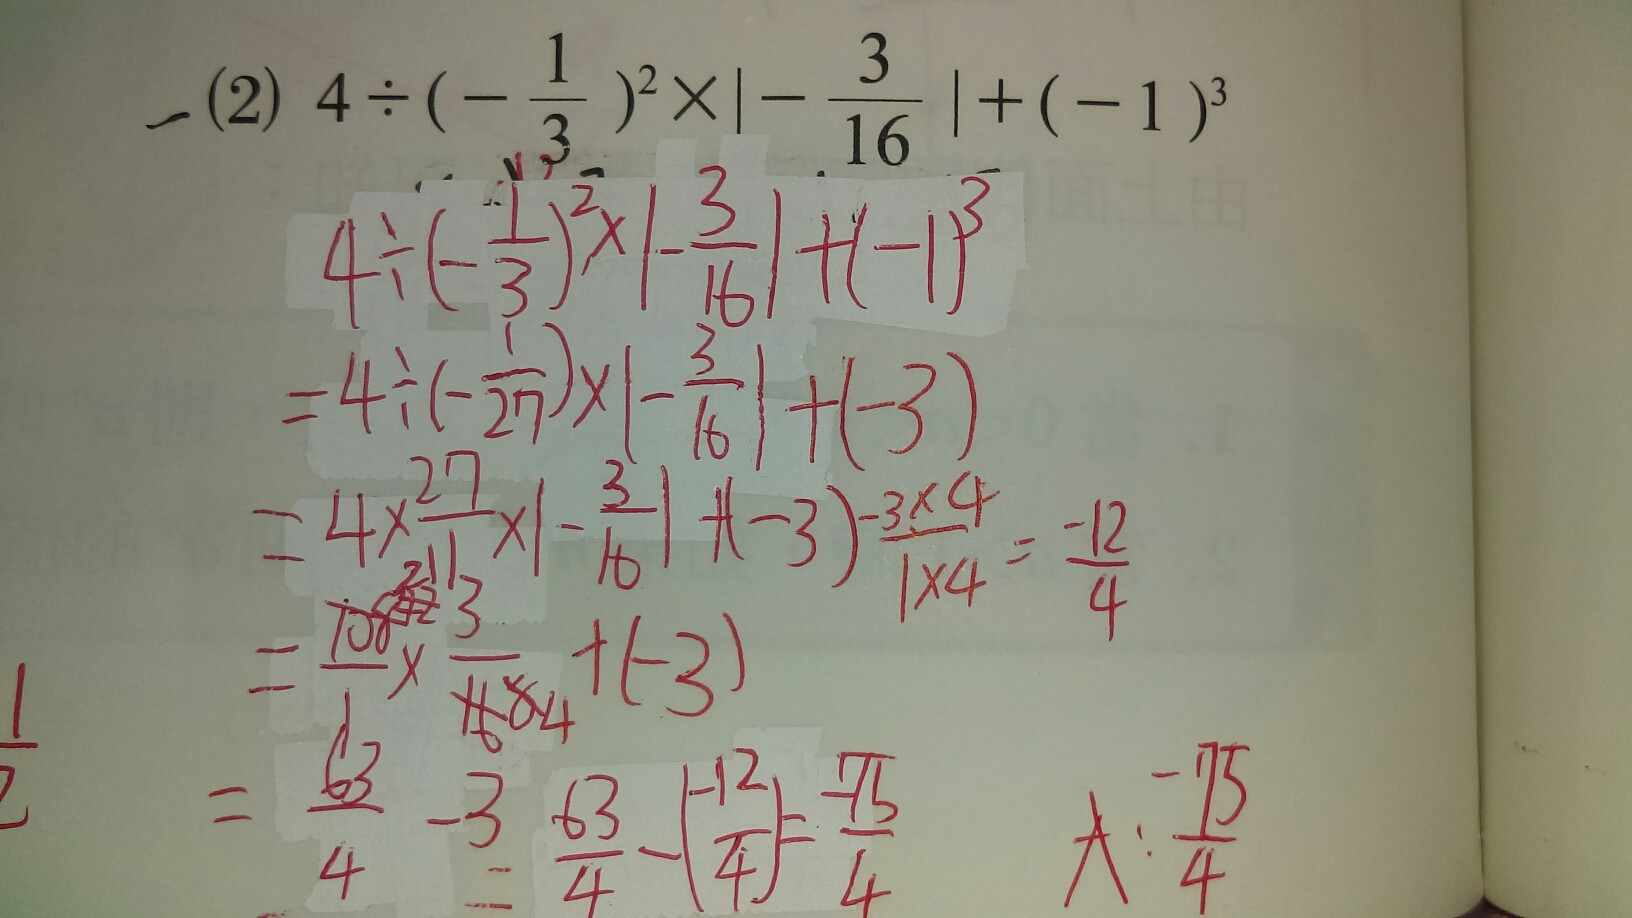 (2) 4÷(−1/3)²×|−3/16|+(−1)³
4÷(-1/3)²×|-3/16|+(-1)³
=4÷(-1/27)×|-3/16|+(-3)
=4×27/1×|-3/16|+(-3) -3×4/1×4 = -12/4
=108/1× 3/16 4 +(-3)
1/2
= 63/4 -3 = 63/4 -(-12/4)= -75/4 A: -75/4